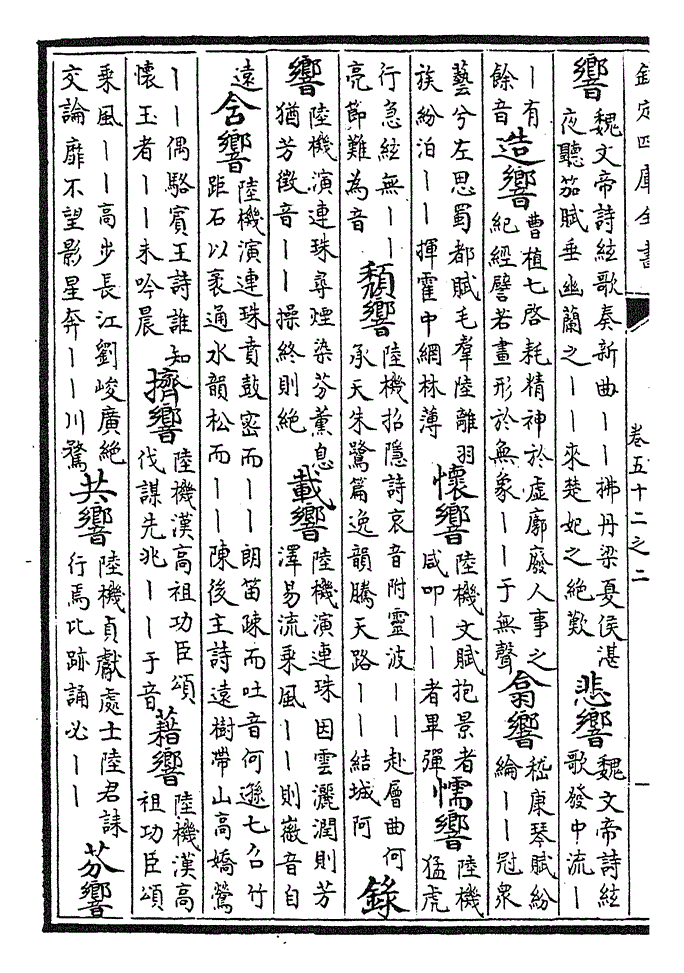 欽定四庫全書 卷五十二之二 一
響
魏文帝詩絃歌奏新曲丨丨拂丹梁夏侯湛
夜聽笳賦垂幽蘭之丨丨來楚妃之絶歎
悲響
魏文帝詩絃
歌發中流丨
丨有
餘音
造響
曹植七啓耗精神於虚廓廢人事之
紀經譬若畫形於無象丨丨于無聲
翕響
嵇康琴賦紛
綸丨丨冠衆
藝兮左思蜀都賦毛羣陸離羽
族紛泊丨丨揮霍中網林薄
懷響
陸機文賦抱景者
咸叩丨丨者畢彈
懦響
陸機
猛虎
行急絃無丨丨
亮節難為音
頽響
陸機招隱詩哀音附靈波丨丨赴層曲何
承天朱鷺篇逸韻騰天路丨丨結城阿
錄
響
陸機演連珠尋煙染芬薰息
猶芳徵音丨丨操終則絶
載響
陸機演連珠因雲灑潤則芳
澤易流乘風丨丨則徽音自
遠
含響
陸機演連珠賁鼓宻而丨丨朗笛疎而吐音何遜七召竹
距石以裛通水韻松而丨丨陳後主詩遠樹帶山高嬌鶯
丨丨偶駱賓王詩誰知
懷玉者丨丨未吟晨
擠響
陸機漢高祖功臣頌
伐謀先兆丨丨于音
藉響
陸機漢高
祖功臣頌
乘風丨丨高步長江劉峻廣絶
交論靡不望影星奔丨丨川騖
共響
陸機貞獻處士陸君誄
行焉比跡誦必丨丨
芬響